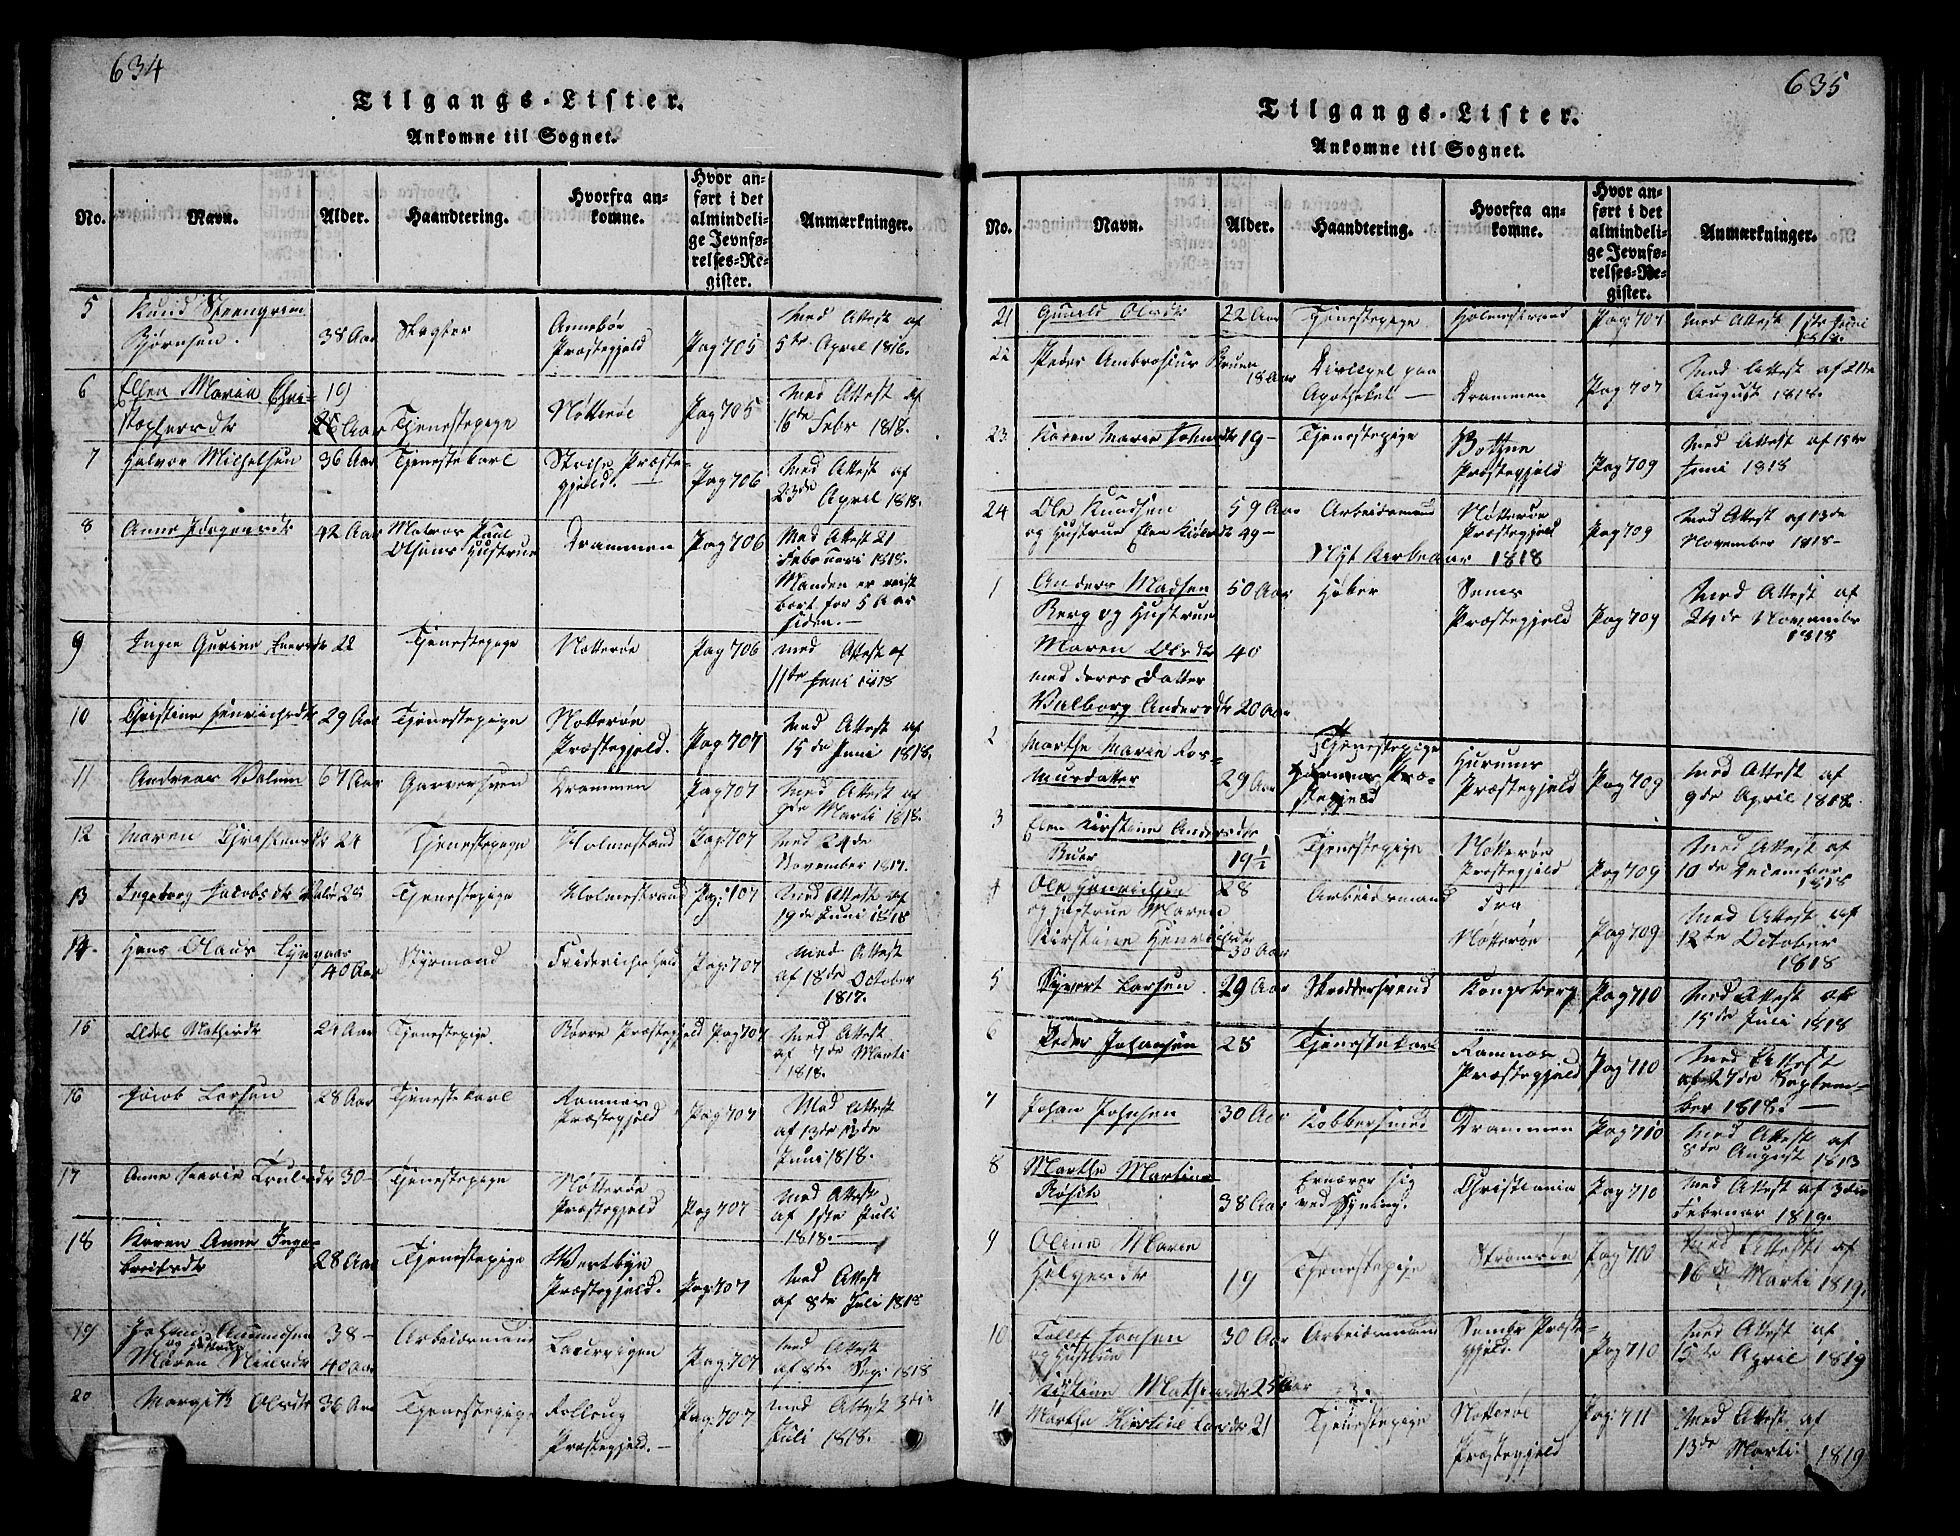 634
Tilgangs-Lister.
Ankomne til Sognet.
No. Navn. Alder. Haandtering. Hvorfra ankomne. Hvor anført i det almindelige Jevnførelses-Register. Anmærkninger.
5 Knud Steengrim Bjørnsen. 38 Aar Annebòe Præstegjeld Pag 705 Med Attest af 5te April 1816.
6 Ellen Maria Christophersdtr 19 Tjenestepige Nøtterøe Pag 705 Med Attest af 16de Febr 1818.
7 Halvor Michelsen 36 Aar Tjenestekarl Præstegjeld. Pag 706 Med Attest af 23de April 1818.
8 Anne 42 Aar Matros Paul Olsens Hustrue Drammen Pag 706 Med Attest 21 Februari 1818. Manden er reist bort for 5 Aar siden.
9 Inger Gurine 22 Tjenestepige Nøtterøe Pag 706 med Attest af 11te Juni 1818
10 Christine Henrichsdtr 29 Aar Tjenestepige Nøtterøe Præstegjeld. Pag 707 Med Attest af 15de Juni 1818.
11 Andreas 67 Aar Garversvend Drammen Pag 707 Med Attest af 9de Marti 1818.
12 Maren Christensdtr 24 Tjenestepige Holmestrand Pag: 707 Med 24de November 1817.
13 Ingeborg Jacobsdtr 28 Tjenestepige Holmestrand Pag: 707 Med Attest af 19de Juni 1818
14. Hans Olaus 40 Aar Styrmand Friderichshald Pag: 707 Med Attest af 18de October 1817.
15 Mathisdtr 24 Aar Tjenestepige. Borre Præstegjeld Pag 707 Med Attest af 7de Marti 1818.
16 Jacob Larsen 28 Aar Tjenestekarl Ramnæs Præstegjeld. Pag: 707 Med Attest af 13de Juni 1818.
17 Anne Marie Trulsdtr 30- Tjenestepige Nøtterøe Præstegjeld Pag 707 Med Attest af 1ste Juli 1818.-
18 Karen Anne Ingebretsdtr 28 Aar Tjenestepige Præstegjeld. Pag: 707 Med Attest af 8de Juli 1818
19 Johan Amundsen og Hustrue Maren Nielsdtr 38- 40 Aar Arbeidsmand Laurvigen Pag: 707 Med Attest af 8de 1818
20 Margith Olsdtr 36 Aar Tjenestepige Præstegjeld.- Pag: 707 Med Attest 3die Juli 1818.
635
Tilgangs-Lister.
Ankomne til Sognet.
No. Navn. Alder. Haandtering. Hvorfra ankomne. Hvor anført i det almindelige Jevnførelses-Register. Anmærkninger.
21 Gunild Olsdtr 22 Aar Tjenestepige Holmestrand Pag: 707 Med Attest 1ste Juni 1818.
22 Peder Ambrosius Bruun 18 Aar Discipel paa Apotheket - Drammen Pag 707 Med Attest af 21de August 1818.
23 Karen Marie 19- Tjenestepige Botne Præstegjeld Pag 709 Med Attest af 15de Juni 1818
24 Ole Knudsen og Hustrue 59 Aar 49- Arbeidsmand Nøtterøe Præstegjeld Pag 709 Med Attest af 13de November 1818-
Nyt Kirkeaar 1818
1 Anders Madsen Berg og Hustrue Maren Olsdtr med deres Datter Valborg Andersdtr 50 Aar 40 20 Aar Høker Sems Præstegjeld Pag 709 Med Attest af 24de November 1818
2 Marthe Marie Rasmusdatter 29 Aar Tjenestepige Hurums Præstegjeld Pag 709 Med Attest af 9de April 1818.
3 Elen Kirstine Andersdtr Buer 19 1/2 Tjenestepige Nøtterøe Præstegjeld Pag 709 Med Attest af 10de December 1818
4 Ole Henrichsen og Hustrue Maren Kirstine Henrichsdtr 28 30 Aar Arbeidsmand Fra Nøtterøe Pag 709 Med Attest af 12te October 1818
5 Syvert Larsen 29 Aar Skreddersvend Kongsberg Pag 710 Med Attest af 15de Juli 1818
6 Peder Johansen 25 Tjenestekarl Ramnæs Præstegjeld Pag 710 Med Attest af 27de September 1818.-
7 Johan Johnsen 30 Aar Kobbersmed Drammen Pag 710 Med Attest af 8de August 1813
8 Marthe Martine 38 Aar Ernærer sig ved Syning. Christiania Pag 710 Med Attest af 3die Februar 1819.
9 Oline Marie Holgersdtr 19 Tjenestepige Strømsøe Pag 710 Med Attest af 16de Marti 1819.
10 Tollef Hansen og Hustrue Kirstine Mathisdtr 30 Aar 25 Aar Arbeidsmand Sems Præstegjeld. Pag 710 Med Attest af 15de April 1819
11 Marthe Kirstine Larsdtr 21 Tjenestepige Nøtterøe Præstegjeld Pag: 711 Med Attest af 13de Marti 1819